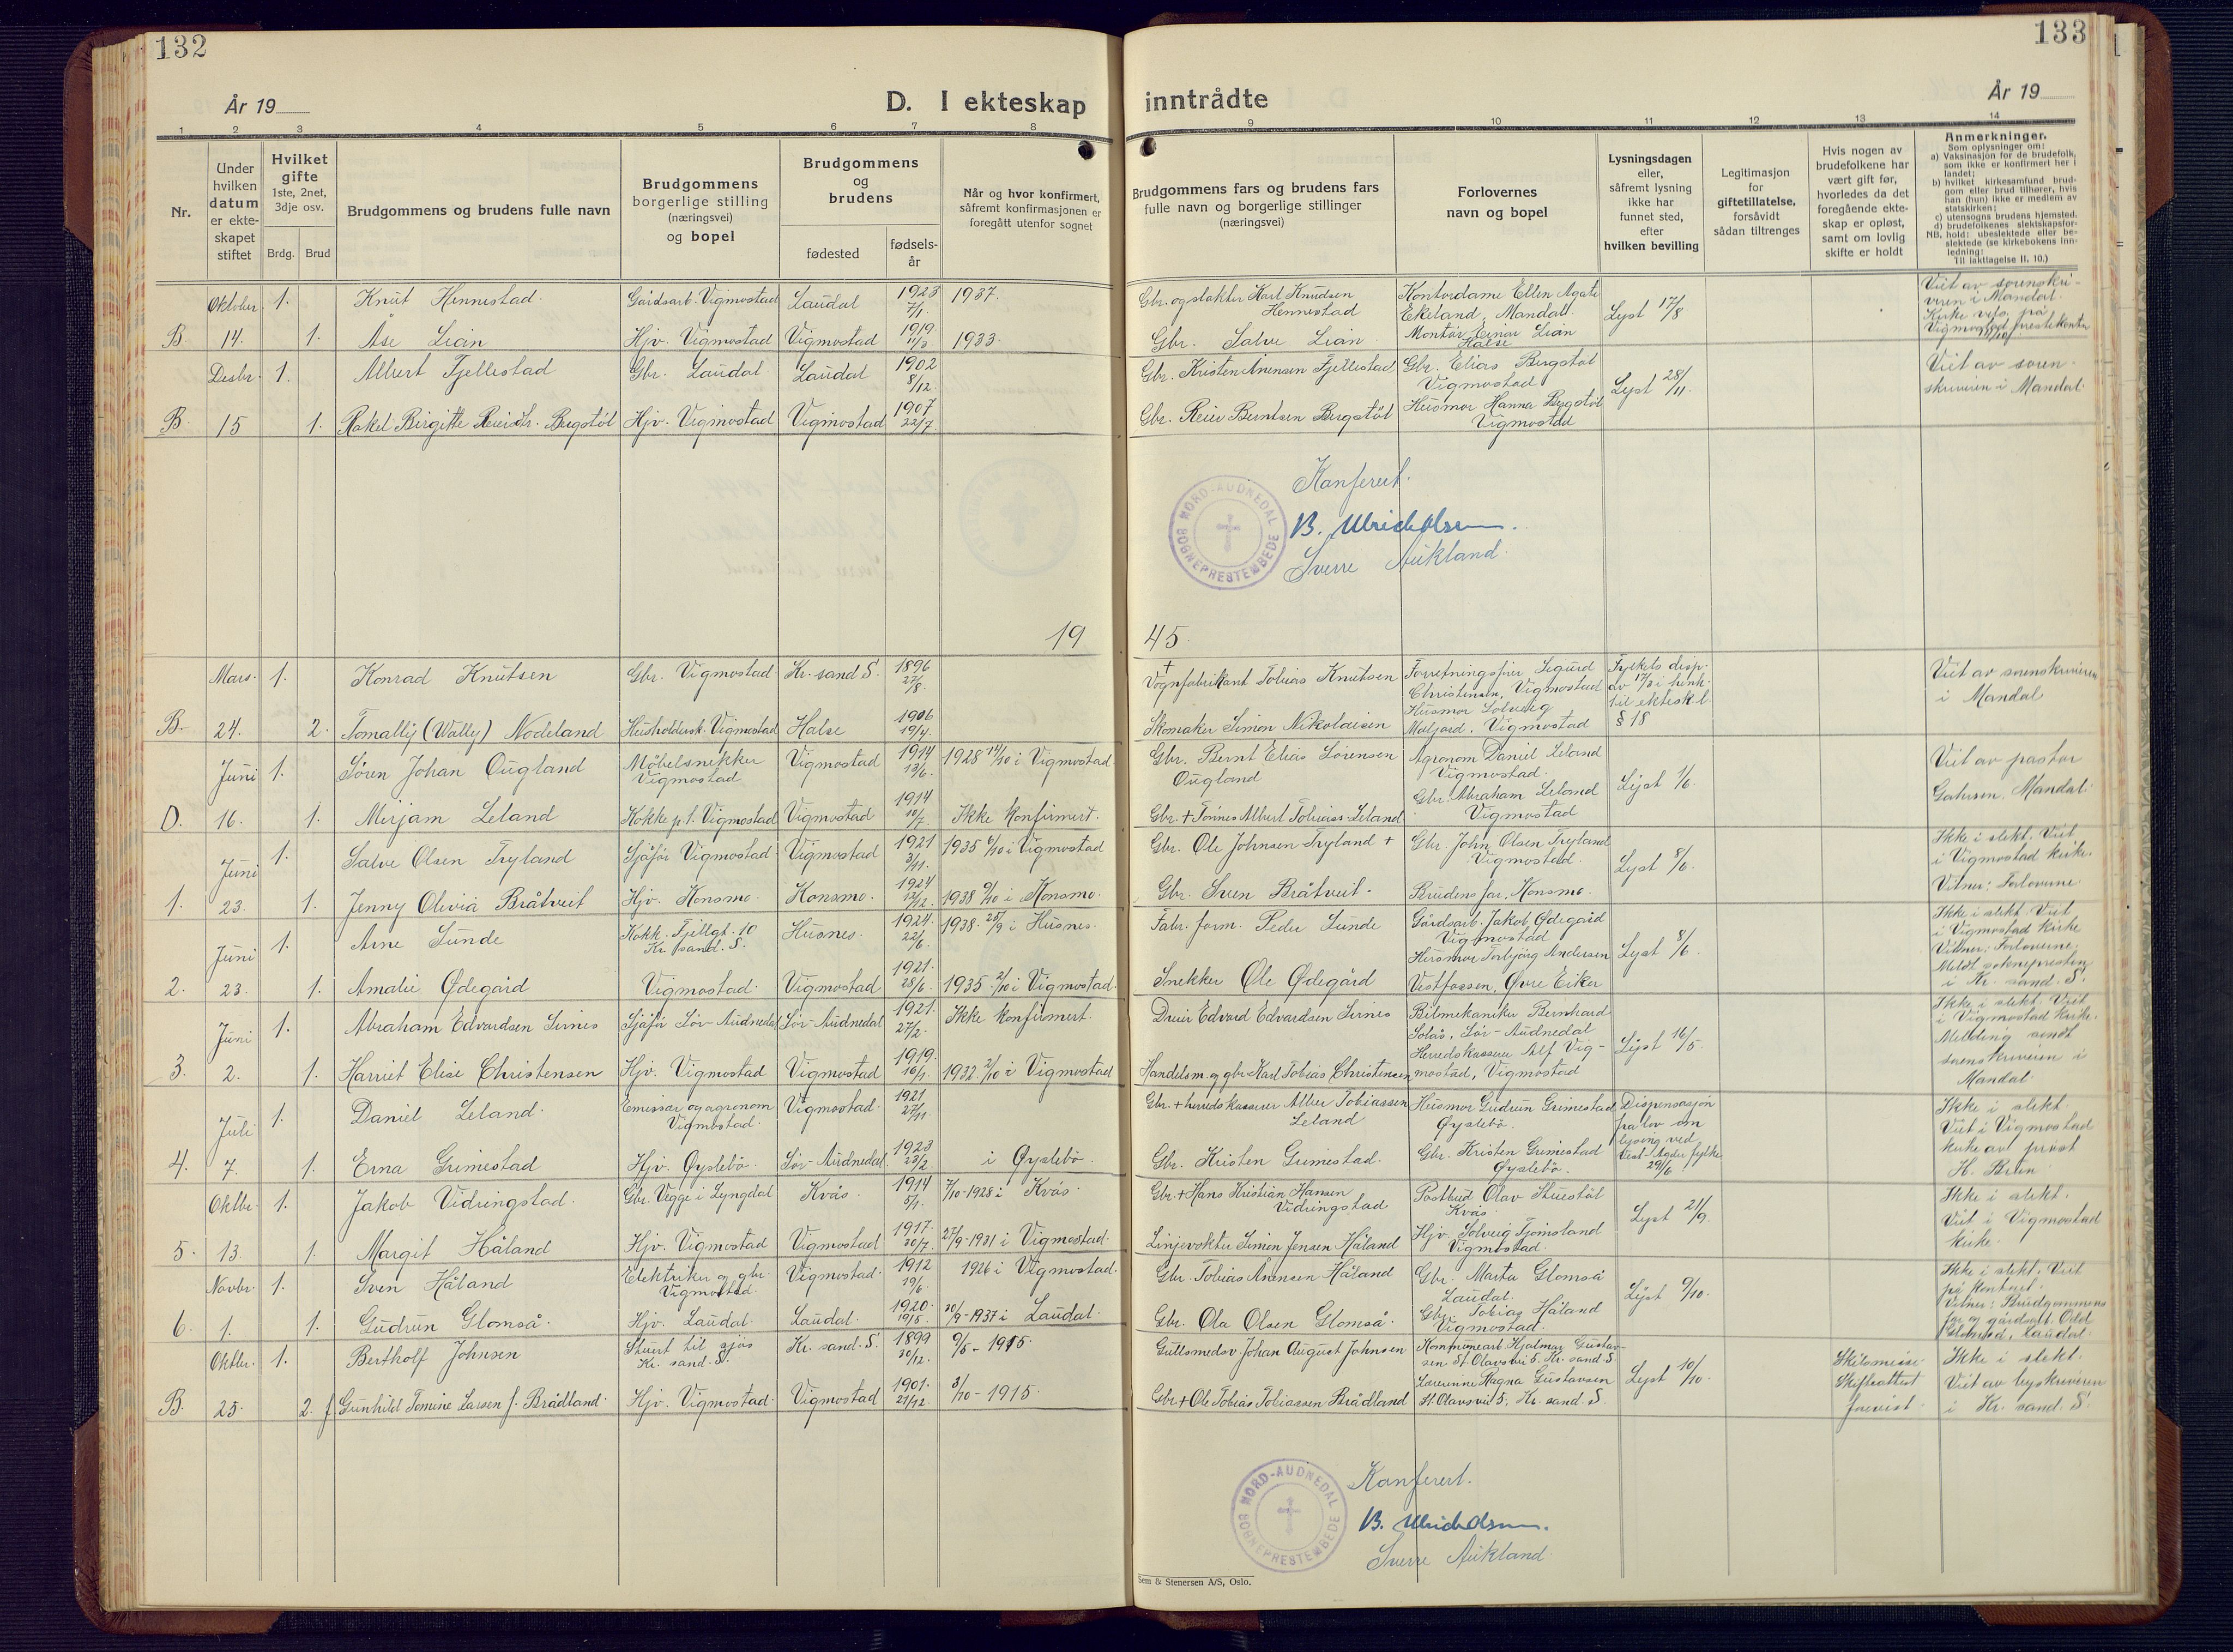 132
133
År 19
D. I ekteskap inntrådte
År 19
1 2 3 4 5 6 7 8 9 10 11 12 13 14
Nr.
Under hvilken datum er ekte-skapet stiftet
Hvilket gifte 1ste, 2net, 3dje osv.
Brdg. Brud
Brudgommens og brudens fulle navn
Brudgommens borgerlige stilling (næringsvei) og bopel
Brudgommens og brudens
fødested
fødsels-år
Når og hvor konfirmert, såfremt konfirmasjonen er foregått utenfor sognet
Brudgommens fars og brudens fars fulle navn og borgerlige stillinger (næringsvei)
Forlovernes navn og bopel
Lysningsdagen eller, såfremt lysning ikke har funnet sted, efter hvilken bevilling
Legitimasjon for giftetillatelse, forsåvidt sådan tiltrenges
Hvis nogen av brudefolkene har vært gift før, hvorledes da det foregående ekte-skap er opløst, samt om lovlig skifte er holdt
Anmerkninger.
Som oplysninger om:
a) Vaksinasjon for de brudefolk, som ikke er konfirmert her i landet;
b) hvilket kirkesamfund brud-gom eller brud tilhører, hvis han (hun) ikke er medlem av statskirken;
c) utensogns brudens hjemsted.
d) brudefolkenes slektskapsfor-hold: ubeslektede eller be-slektede (se kirkebokens inn-ledning:
NB. Til iakttagelse II. 10.)
Oktober 1. Knut Hennestad. Gårdsarb. Vigmostad Laudal 1923 7/1. 1937. Gbr. og slakter Karl Knudsen Hennestad Kontordame Ellen Agate Ekeland, Mandal. Lyst 17/8 Viet av sorenskri-veren i Mandal. Kirke vels. på Vigmostad prestekontor
B. 14. 1. Åse Lian Hjv. Vigmostad Vigmostad 1919 11/3 1933. Gbr. Salve Lian. Montør Einar Lian Halse
Desbr. 1. Albert Fjellestad Gbr. Laudal Laudal 1902 8/12. Gbr. Kristen Arensen Fjellestad Gbr. Elias Bergstøl Vigmostad Lyst 28/11. Viet av soren-skriveren i Mandal.
B. 15 1. Rakel Birgitte Reiersdtr. Bergstøl Hjv. Vigmostad Vigmostad 1907 22/7. Gbr. Reier Berntsen Bergstøl Husmor Hanna Bergstøl Vigmostad
NORD-AUDNEDAL SOGNEPRESTEMBEDE
Konferert.
B. Ulricholsen.
Sverre Aukland.
19 45.
Mars. 1. Konrad Knutsen Gbr. Vigmostad. Kr. sand S. 1896 27/8. + Vognfabrikant Tobias Knutsen Forretningsfører Sigurd Christensen, Vigmostad Fylkets disp. av 17/3 i henh. til ekteskl. § 18 Viet av sorenskriveren i Mandal
B. 24. 2. Tomally (Wally) Nodeland Husholdersk. Vigmostad Halse 1906 19/4. Skomaker Simon Nikolaisen Husmor Solveig Vigmostad
Juni 1. Søren Johan Ougland Møbelsnekker Vigmostad Vigmostad 1914 13/6. 1928 14/10 i Vigmostad Gbr. Bernt Elias Sørensen Ougland Agronom Daniel Leland Vigmostad. Lyst 1/6. Viet av pastor Gahrsen, Mandal.
D. 16. 1. Mirjam Leland Kokke p.t. Vigmostad Vigmostad 1914 10/7. Ikke konfirmert. Gbr. + Tønnes Albert Tobiass Leland Gbr. Abraham Leland Vigmostad
Juni 1. Salve Olsen Tryland Sjåfør Vigmostad Vigmostad 1921 3/11. 1935 6/10 i Vigmostad Gbr. Ole Johnsen Tryland + Gbr. John Olsen Tryland Vigmostad. Lyst 8/6. Ikke i slekt. Viet i Vigmostad kirke. Vitner: Forloverne.
1. 23. 1. Jenny Olivia Bråtveit Hjv. Konsmo. Konsmo. 1924 12/12. 1938 9/10 i Konsmo. Gbr. Sven Bråtveit. Brudens far, Konsmo.
Juni 1. Arne Sunde Kokk. Fjellgt. 10 Kr. sand. S. Husnes. 1924. 22/6. 1938. 25/9 i Husnes. Fabr. form. Peder Sunde Gårdsarb. Jakob Ødegård Vigmostad Lyst 8/6. Ikke i slekt. Viet i Vigmostad kirke Vitner: Forloverne. Meldt sokneprestene i Kr. sand. S.
2. 23. 1. Amalie Ødegård Vigmostad. Vigmostad 1921. 28/6. 1935. 2/10 i Vigmostad. Snekker Ole Ødegård Husmor Torbjørg Andersen Vestfossen, Øvre Eiker
Juni 1. Abraham Edvardsen Sirnes Sjåfør Sør-Audnedal Sør-Audnedal 1921. 27/2. Ikke konfirmert. Dreier Edvard Edvardsen Sirnes Bilmekaniker Bernhard Solås, Sør-Audnedal Lyst 16/5. Ikke i slekt. Viet i Vigmostad kirke. Melding sendt sorenskriveren i Mandal.
3. 2. 1. Harriet Elise Christensen Hjv. Vigmostad Vigmostad 1919. 16/1. 1932. 2/10 i Vigmostad Handelsm. og gbr. Karl Tobias Christensen Herredskasserer Alf Vig-mostad, Vigmostad
Juli 1. Daniel Leland. Emissær og agronom Vigmostad. Vigmostad. 1921 27/11. Gbr. + herredskasserer Alber Tobiassen Leland Husmor Gudrun Grimestad Øyslebø. Dispensasjon fra lov om lysing ved Vest-Agder fylke 29/6. Ikke i slekt. Viet i Vigmostad kirke av prost H. Brun.
4. 7. 1. Erna Grimestad Hjv. Øyslebø. Sør-Audnedal 1923 23/2. i Øyslebø. Gbr. Kristen Grimestad. Gbr. Kristen Grimestad Øyslebø.
Oktbr. 1. Jakob Vidringstad. Gbr. Vegge i Lyngdal Kvås. 1914 5/1. 7/10-1928 i Kvås. Gbr. + Hans Kristian Hansen Vidringstad Postbud Olav Stuestøl Kvås Lyst 21/9. Ikke i slekt. Viet i Vigmostad kirke.
5. 13. 1. Margit Håland Hjv. Vigmostad Vigmostad 1917. 30/7. 27/9-1931 i Vigmostad. Linjevokter Simon Jensen Håland Hjv. Solveig Tjomsland Vigmostad.
Novbr. 1. Sven Håland Elektriker og gbr. Vigmostad. Vigmostad. 1912 19/6 1926 i Vigmostad. Gbr. Tobias Arensen Håland Gbr. Marta Glomså Laudal. Lyst 9/10. Ikke i slekt. Viet på kontoret. Vitner: Brudgommens far og gårdsarb. Odd Laudal.
6. 1. 1. Gudrun Glomså. Hjv. Laudal. Laudal. 1920. 19/5. 20/9-1937 i Laudal. Gbr. Ola Olsen Glomså. Gbr. Tobias Håland Vigmostad.
Oktbr. 1. Bertholf Johnsen Stuert til sjøs Kr. sand. S. Kr. sand. S. 1899 20/12. 9/5-1915. Gullsmedsv. Johan August Johnsen Kommunearb. Hjalmar Gustav-sen St. Olavsvei 5. Kr. sand S. Lyst 10/10. Skilsmisse. Skifteattest forevist. Ikke i slekt. Viet av byskriveren i Kr. sand. S.
B. 25. 2. f. Gunhild Tomine Larsen f. Brådland. Hjv. Vigmostad. Vigmostad 1901. 21/12 3/10-1915. Gbr. + Ole Tobias Tobiassen Brådland Lærerinne Magna Gustavsen St. Olavsvei 5, Kr. sand. S.
NORD-AUDNEDAL SOGNEPRESTEMBEDE
Konferert.
B. Ulricholsen.
Sverre Aukland.
Sem & Stenersen A/S, Oslo.